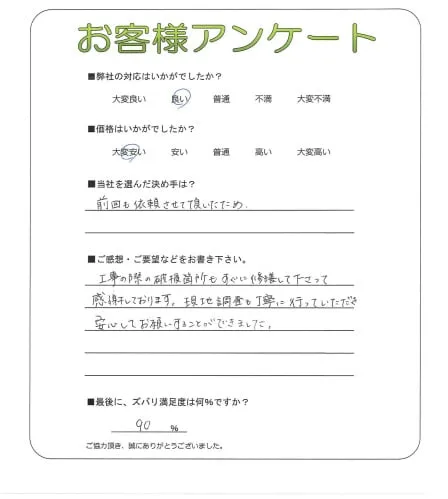 お客様アンケート
■弊社の対応はいかがでしたか？
大変良い 良い 普通 不満 大変不満
■価格はいかがでしたか？
大変安い 安い 普通 高い 大変高い
■当社を選んだ決め手は？
前回も依頼させて頂いたため.
■ご感想・ご要望などをお書き下さい。
工事の際の破損箇所もすぐに修繕して下さって
感謝しております。現地調査も丁寧に行っていただき
安心してお願いすることができました。
■最後に、ズバリ満足度は何%ですか？
90 %
ご協力頂き、誠にありがとうございました。